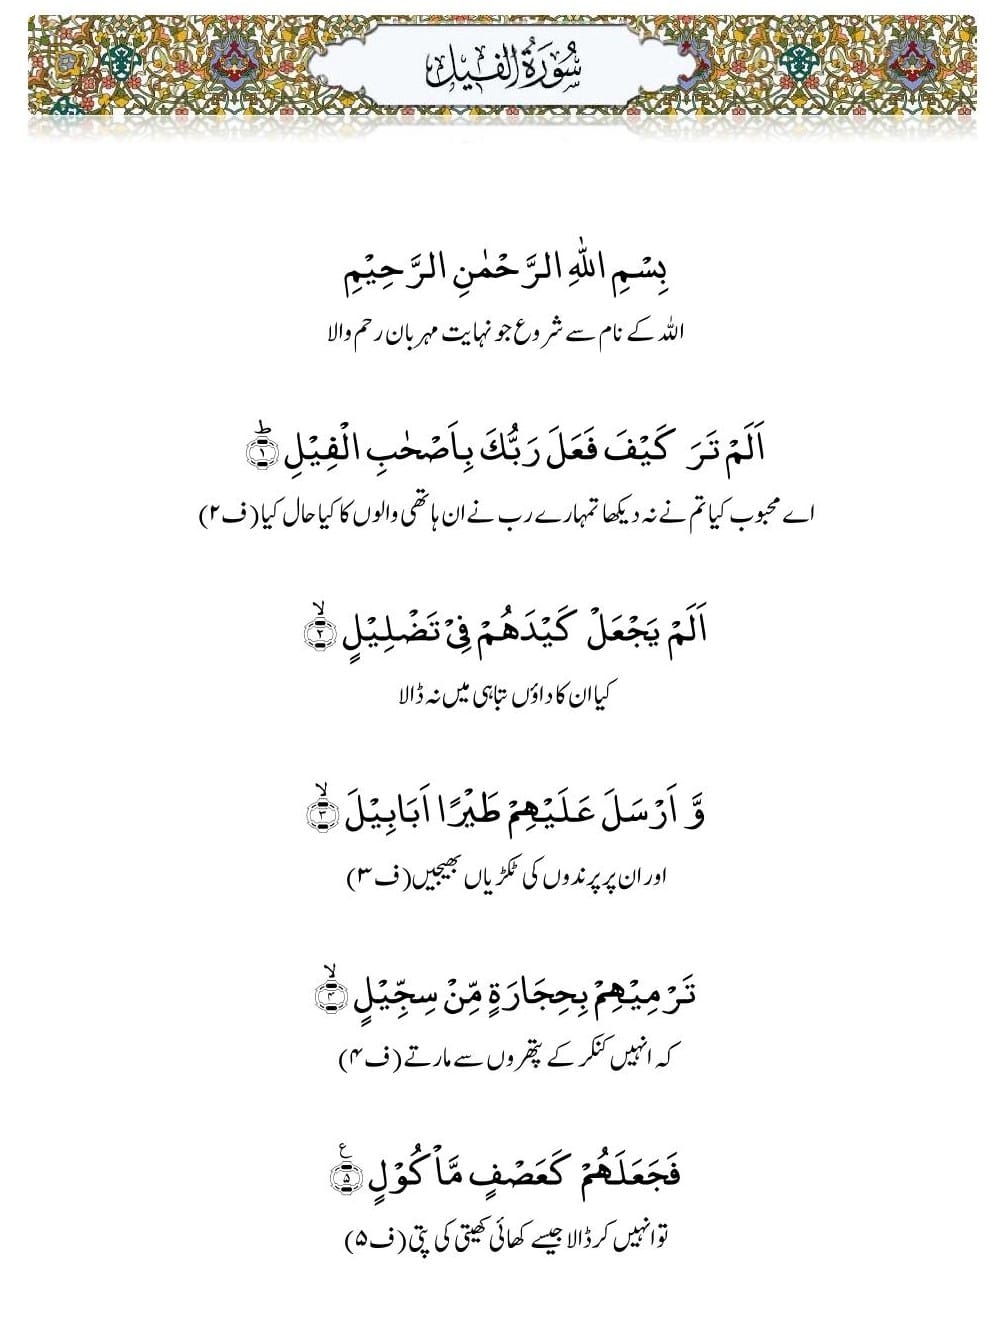 سُوْرَةُ الفِیل
بِسْمِ اللّٰهِ الرَّحْمٰنِ الرَّحِیْمِ
اللہ کے نام سے شروع جو نہایت مہربان رحم والا
اَلَمْ تَرَ كَیْفَ فَعَلَ رَبُّكَ بِاَصْحٰبِ الْفِیْلِؕ۝۱
اے محبوب کیا تم نے نہ دیکھا تمہارے رب نے ان ہاتھی والوں کا کیا حال کیا (ف۲)
اَلَمْ یَجْعَلْ كَیْدَهُمْ فِیْ تَضْلِیْلٍۙ۝۲
کیا ان کا داؤں تباہی میں نہ ڈالا
وَّ اَرْسَلَ عَلَیْهِمْ طَیْرًا اَبَابِیْلَۙ۝۳
اور ان پر پرندوں کی ٹکڑیاں بھیجیں (ف۳)
تَرْمِیْهِمْ بِحِجَارَةٍ مِّنْ سِجِّیْلٍۙ۝۴
کہ انہیں کنکر کے پتھروں سے مارتے (ف۴)
فَجَعَلَهُمْ كَعَصْفٍ مَّاْكُوْلٍ۠۝۵
تو انہیں کر ڈالا جیسے کھائی کھیتی کی پتی (ف۵)